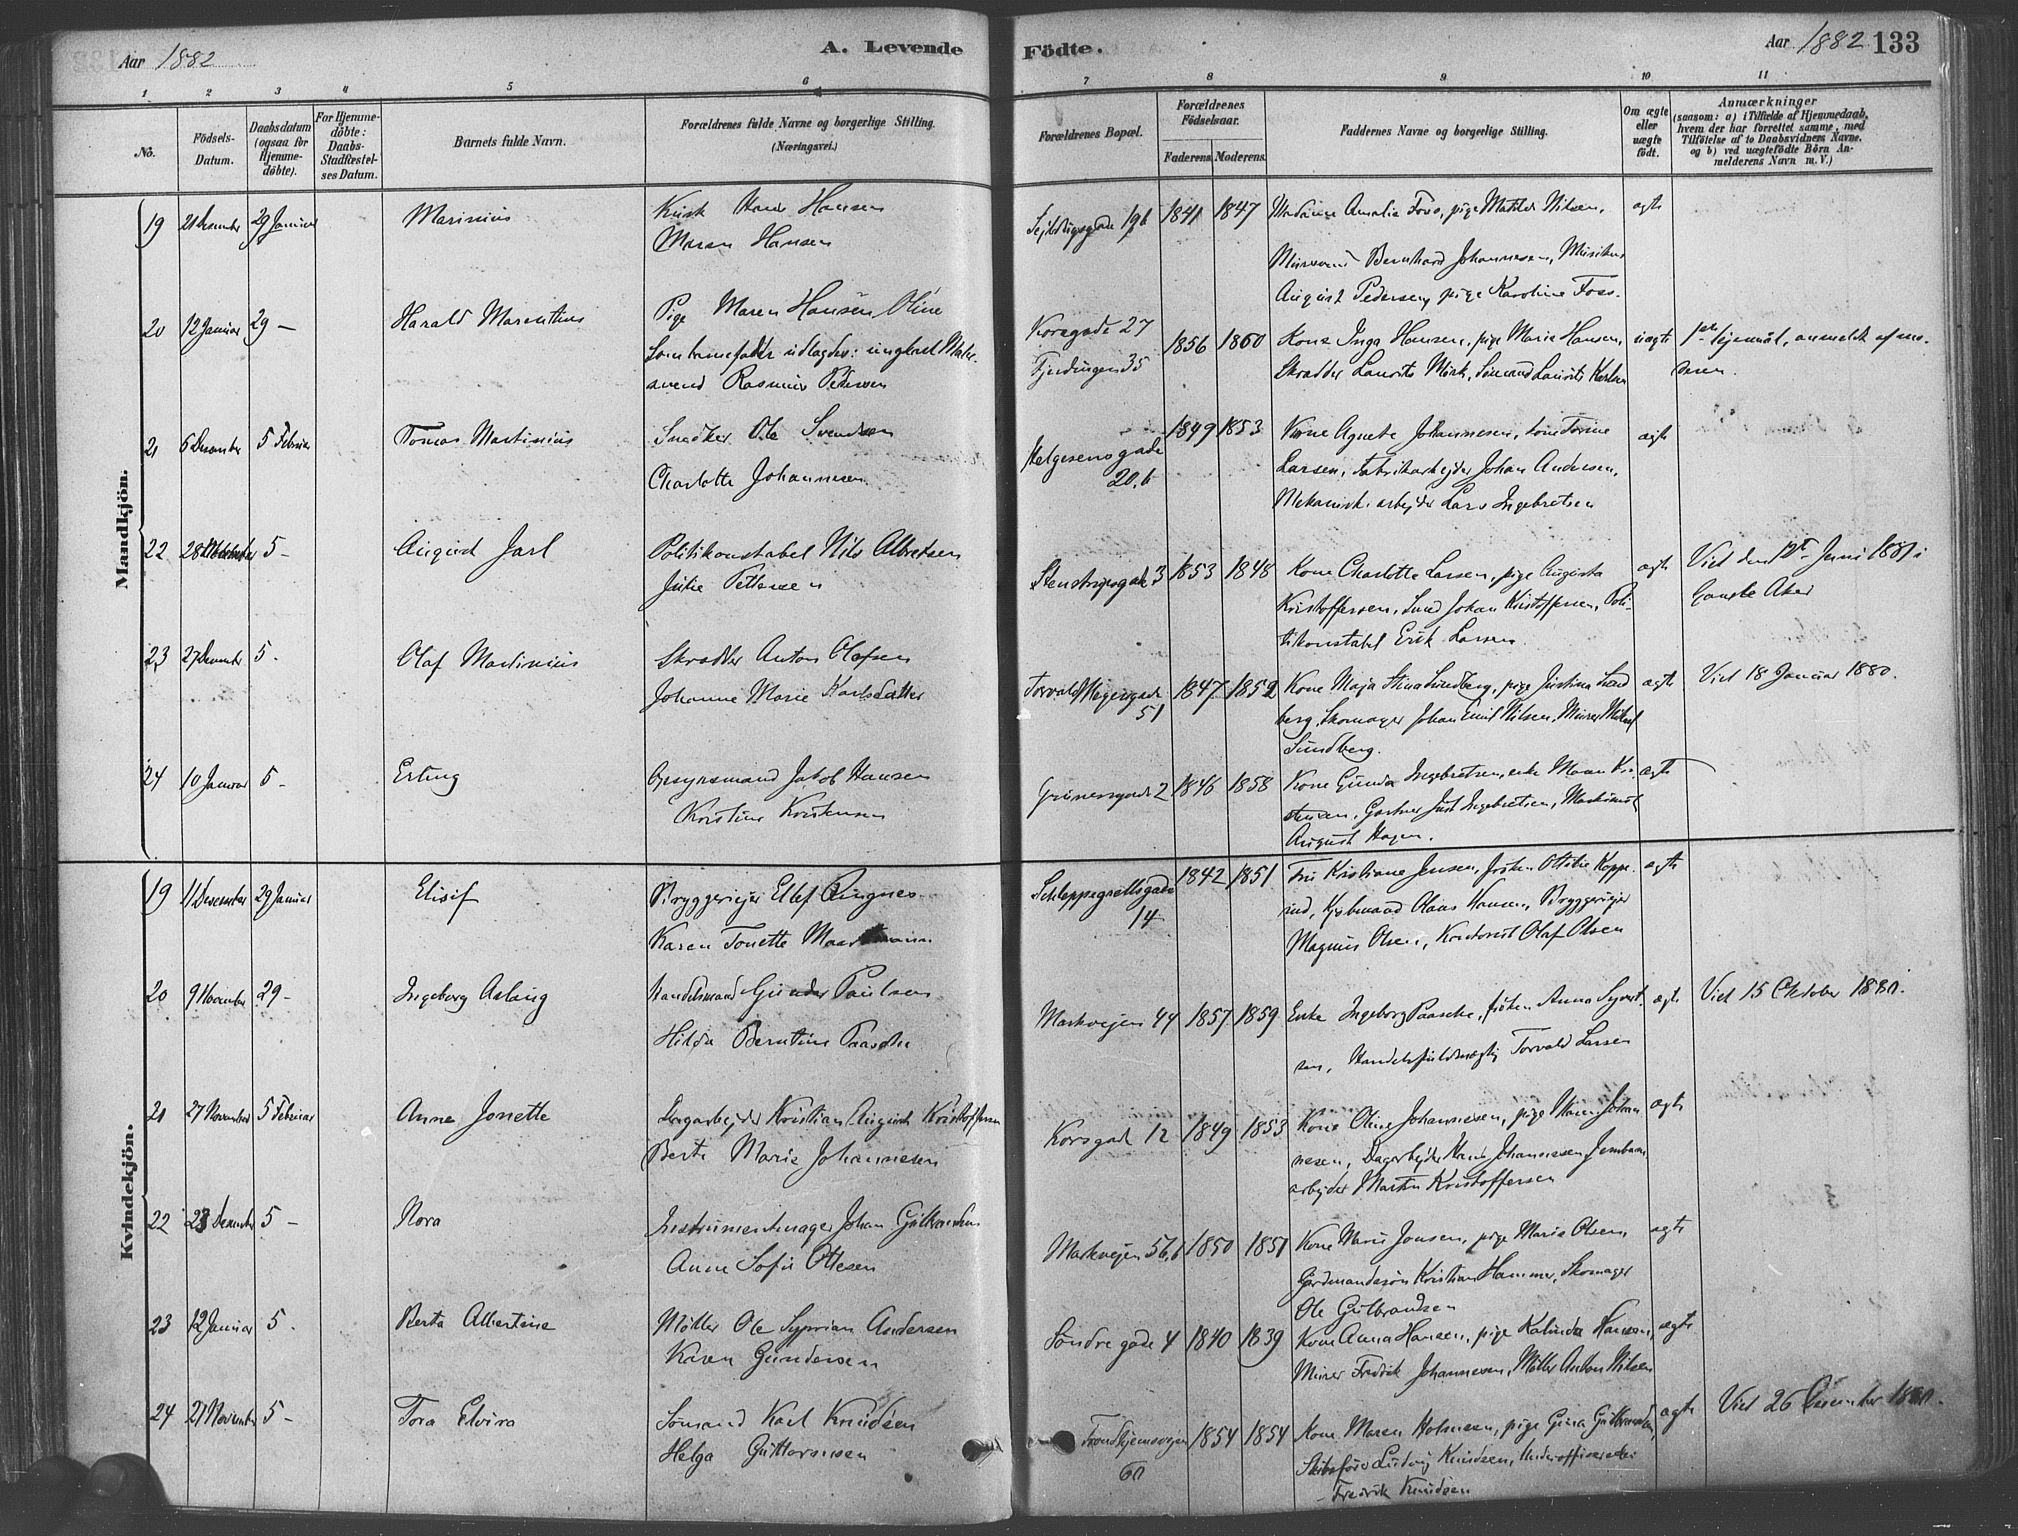 Aar 1882
A. Levende
Födte.
Aar 1882 133
1 2 3 4 5 6 7 8 9 10 11
No.
Födsels-Datum.
Daabsdatum (ogsaa for Hjemmedöbte).
For Hjemmedöbte: Daabs-Stadfæstelses Datum.
Barnets fulde Navn.
Forældrenes fulde Navne og borgerlige Stilling.
(Næringsvei.)
Forældrenes Bopæl.
Forældrenes Födselsaar.
Faderens. Moderens.
Faddernes Navne og borgerlige Stilling.
Om ægte eller uægte födt.
Anmærkninger
(saasom: a) i Tilfælde af Hjemmedaab,
hvem der har forrettet samme, med
Tilföielse af to Daabsvidners Navne,
og b) ved uægtefödte Börn An-
melderens Navn m. V.)
Mandkjön.
19 21 Desember 29 Januar Marinius
Kusk Hans Hansen
Maren Hansen
1841 1847 Madame Amalie Foss, pige Matilde Nilsen,
Murersvend Bernhard Johannesen, Musikus
August Pedersen, pige Karoline Foss.
ægte
20 12 Januar 29 — Harald Marentius
Pige Maren Hansen Oline
Som barnefader udlagdes: ungkarl Maler-
svend Rasmus Petersen
Korsgade 27
Fjerdingen 35
1856 1860 Kone Inga Hansen, pige Marie Hansen,
Skrædder Laurits Mörk, Sömand Laurits Karlsen
uægte
1ste lejermål, anmeldt af mo-
deren.
21 6 Desember 5 Februar Tomas Martinius
Snedker Ole Svendsen
Charlotte Johannesen
Helgesensgade
20.b
1849 1853 Kone Agnete Johannesen, Kone Torine
Larsen, Fabrikarbejder Johan Andersen,
Mekanisk arbejder Lars Ingebretsen
ægte
22 28 5 — August Jarl
Politikonstabel Nils Albretsen
Julie Pettersen
Stenstrupsgade 3 1853 1848 Kone Charlotte Larsen, pige Augusta
Kristoffersen, Smed Johan Kristoffersen, Poli-
tikonstabel Erik Larsen
ægte
Viet den 12te Juni 1881 i
Gamle Aker
23 27 Desember 5 - Olaf Martinius
Skrædder Anton Olafsen
Johanne Marie Karlsdatter
Torvald Meyersgade
51
1847 1852 Kone Maja Stina Sundberg, pige Justina Sund
berg, Skomager Johan Emil Nilsen, Murer
Sundberg.
ægte Viet 18 Januar 1880.
24 10 Januar 5 - Erling
Opsynsmand Jakob Hansen
Kristine Kristensen
Grünersgade 2 1846 1858 Kone Gunda Ingebretsen, enke Maren Kri
stensen, Gartner Just Ingebretsen, Maskinist
August Hagen.
ægte
Kvindekjön.
19 11 Desember 29 Januar Elisif
Bryggeriejer Ellef Ringnes
Karen Tonette
Schleppegrellsgade
14
1842 1851 Fru Kristiane Jensen, fröken Ottilie Koppe
rud, Kjöbmand Olaus Hansen, Bryggeriejer
Magnus Olsen, Olaf Olsen
ægte
20 9 November 29 - Ingeborg Aslaug
Handelsmand Gunder Paulsen
Hilda Berntine Paasche
Markvejen 44 1857 1859 Enke Ingeborg Paasche, fröken Anna Syvert
sen, Handelsfuldmægtig Torvald Larsen
ægte Viet 15 Oktober 1881.
21 27 November 5 Februar Anne Jonette
Kristian August Kristoffersen
Berte Marie Johannesen
Korsgade 12 1849 1853 Kone Oline Johannesen, pige Maren Johan
nesen, Dagarbejder Hans Johannesen, Jernbane
arbejder Martin Kristoffersen
ægte
22 23 Desember 5 - Nora
Instrumentmager Johan Gulbrandsen
Anne Sofie Ottesen
Markvejen 56,b 1850 1851 Kone Marie Jonsen, pige Marie Olsen,
Gårdmandssön Kristian Hammer, Skomager
Ole Gulbrandsen
ægte
23 12 Januar 5 - Berta Albertine
Möller Ole Syprian Andersen
Karen Gundersen
Söndre gade 4 1840 1839 Kone Anna Hansen, pige Kalinda Hansen,
Murer Fredrik Johannesen, Möller Anton Nilsen
ægte
24 21 November 5 - Tora Elvira
Sömand Karl Knudsen
Helga Guttormsen
Trondhjemsvejen
60
1854 1854 Kone Maren Holmsen, pige Gina Gulbrandsen,
Skibsförer Ludvig Knudsen,
Fredrik Knudsen
ægte Viet 26 Desember